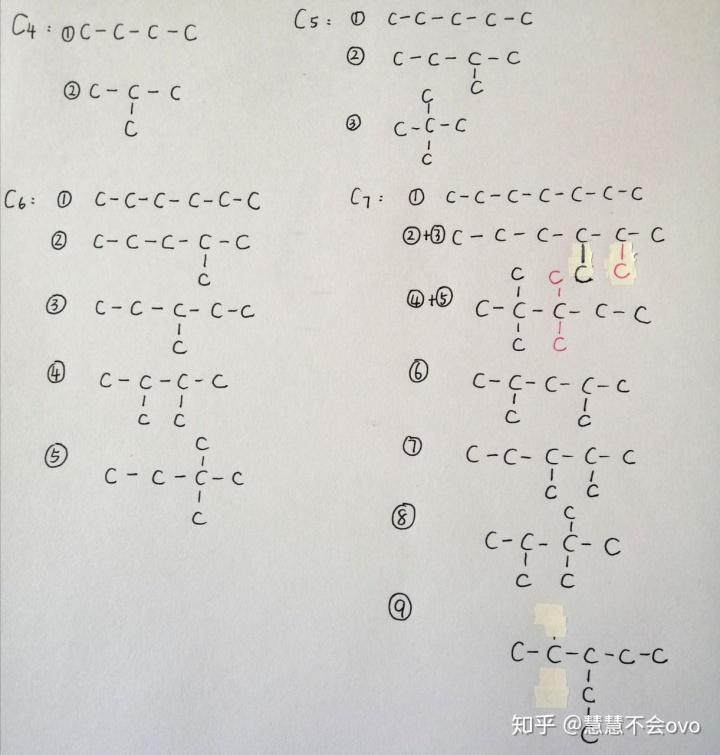 C4: ①C-C-C-C
②C-C-C
C
C5: ① C-C-C-C-C
② C-C-C-C
C
③
C
C-C-C
C
C6: ① C-C-C-C-C-C
② C-C-C-C-C
C
③ C-C-C-C-C
C
④ C-C-C-C
C C
⑤
C
C-C-C-C
C
C7: ① C-C-C-C-C-C-C
②+③ C-C-C-C-C-C
C C
④+⑤
C C
C-C-C-C-C
C C
⑥ C-C-C-C-C
C C
⑦ C-C-C-C-C
C C
⑧
C
C-C-C-C
C C
⑨
C-C-C-C-C
C
C
知乎 @慧慧不会ovo